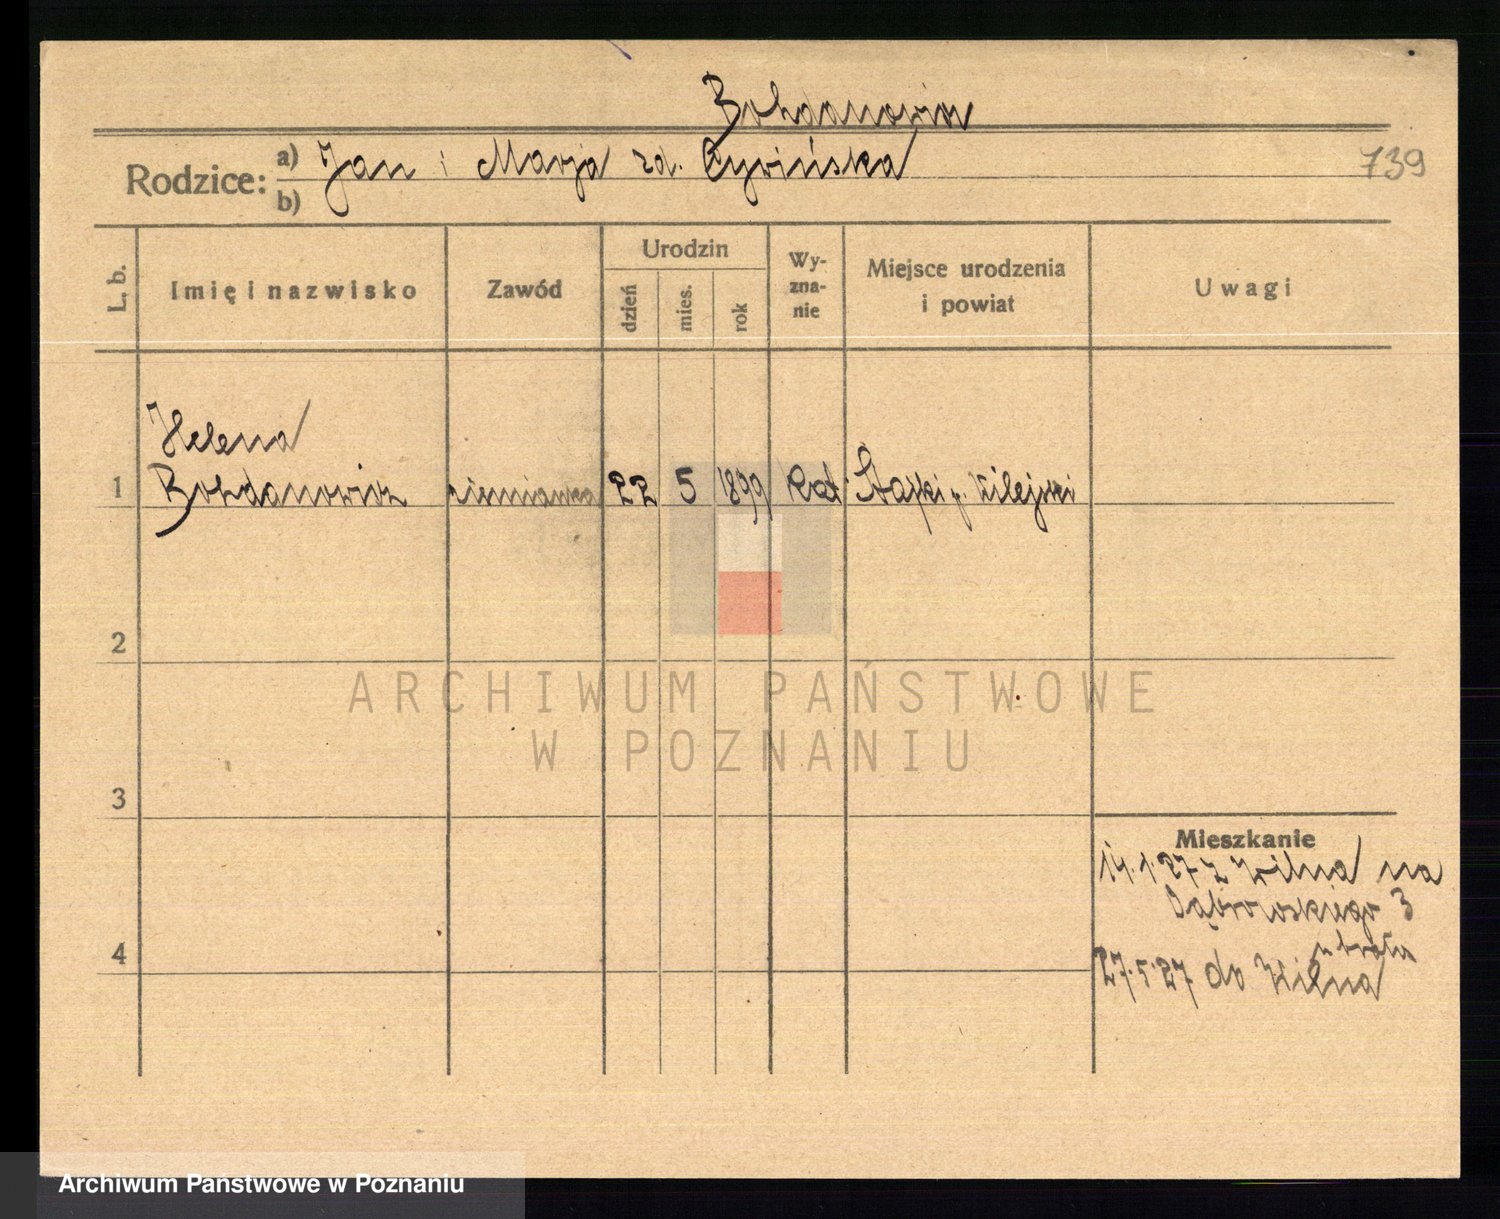 Bohdanowicz
Rodzice: a) Jan i Marja zd.
b)
739
L. b.
Imię i nazwisko
Zawód
Urodzin
dzień
mies.
rok
Wy-
zna-
nie
Miejsce urodzenia
i powiat
Uwagi
Helena
1 Bohdanowicz ziemianka 22 5 1899 kat
2
ARCHIWUM PAŃSTWOWE
W POZNANIU
3
Mieszkanie
14.1.27 z Wilna na
Dąbrowskiego 3
u brata
4
27.5.27 do Wilna
Archiwum Państwowe w Poznaniu